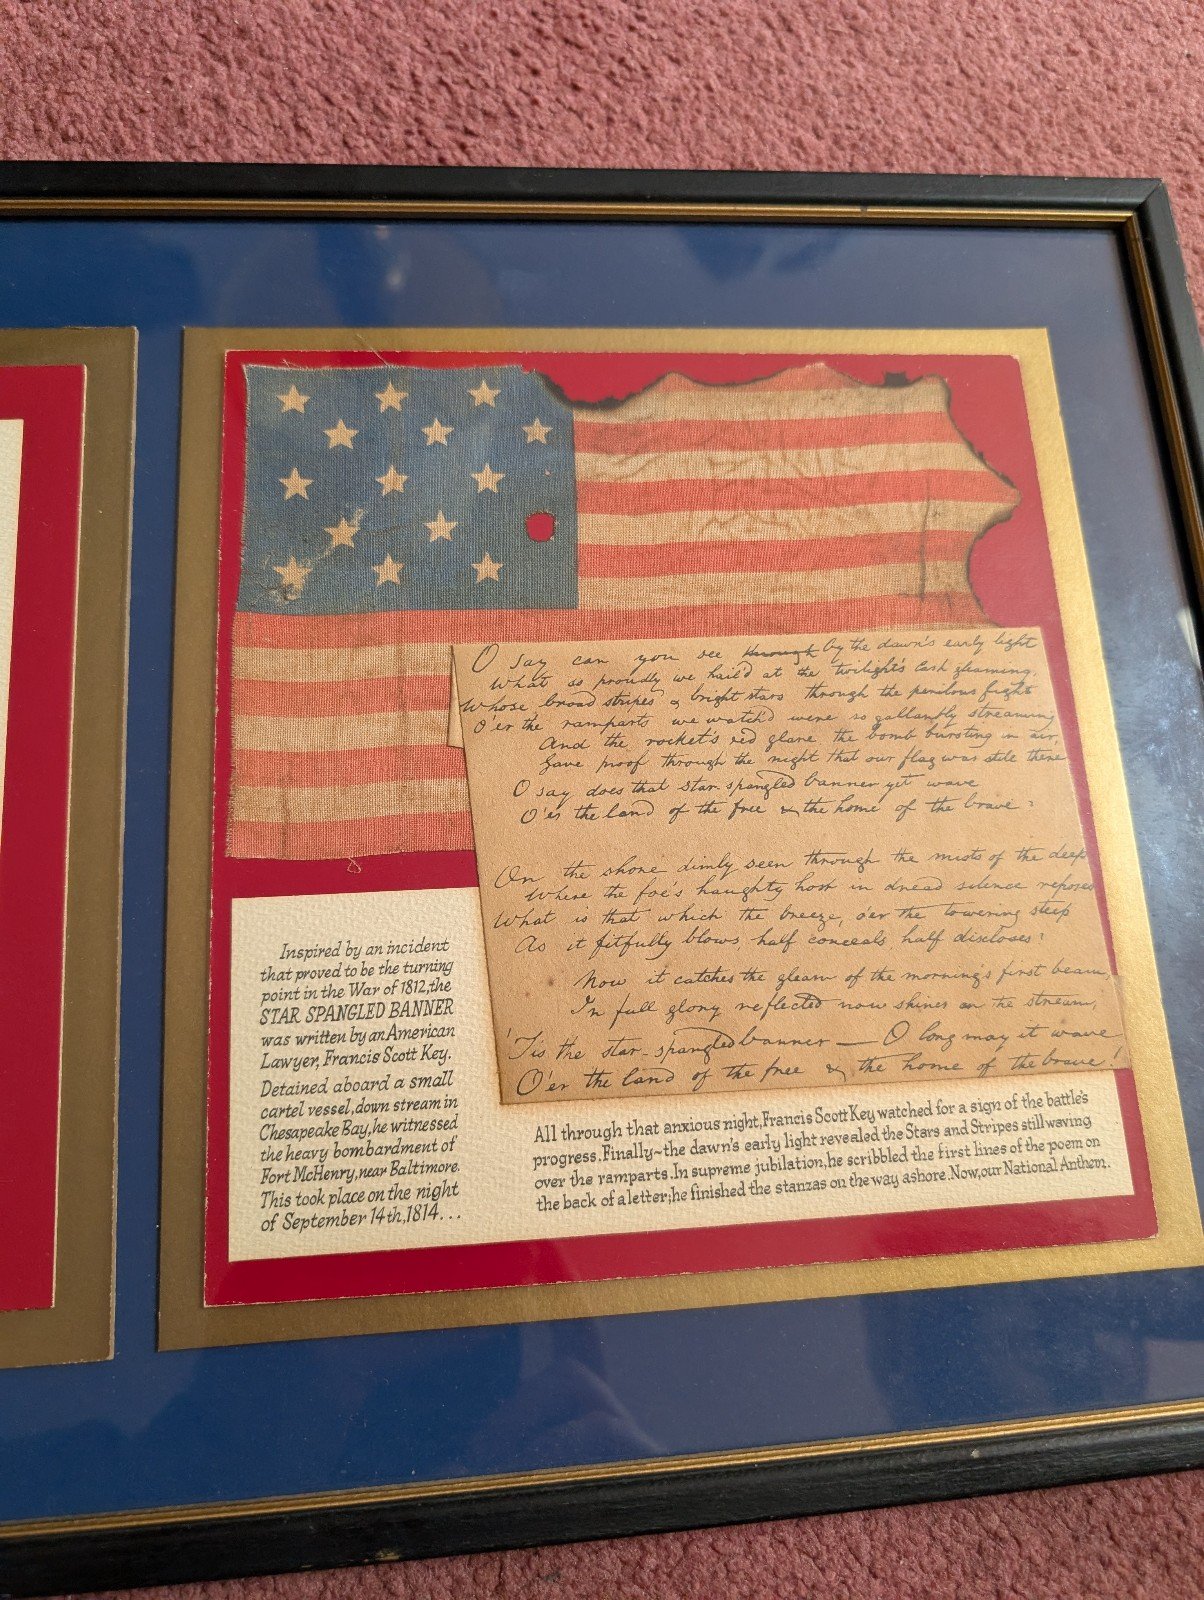 O say can you see through by the dawn's early light
What so proudly we hail'd at the twilight's last gleaming,
Whose broad stripes & bright stars through the perilous fight
O'er the ramparts we watch'd were so gallantly streaming
And the rocket's red glare the bomb bursting in air,
Gave proof through the night that our flag was still there
O say does that star spangled banner yet wave
O'er the land of the free & the home of the brave?
On the shore dimly seen through the mists of the deep
Where the foe's haughty host in dread silence reposes
What is that which the breeze, o'er the towering steep
As it fitfully blows, half conceals half discloses?
Now it catches the gleam of the morning's first beam,
In full glory reflected now shines on the stream,
'Tis the star-spangled banner — O long may it wave
O'er the land of the free & the home of the brave!
Inspired by an incident
that proved to be the turning
point in the War of 1812, the
STAR SPANGLED BANNER
was written by an American
Lawyer, Francis Scott Key.
Detained aboard a small
cartel vessel, down stream in
Chesapeake Bay, he witnessed
the heavy bombardment of
Fort McHenry, near Baltimore.
This took place on the night
of September 14th, 1814...
All through that anxious night, Francis Scott Key watched for a sign of the battle's
progress. Finally~the dawn's early light revealed the Stars and Stripes still waving
over the ramparts. In supreme jubilation, he scribbled the first lines of the poem on
the back of a letter; he finished the stanzas on the way ashore. Now, our National Anthem.